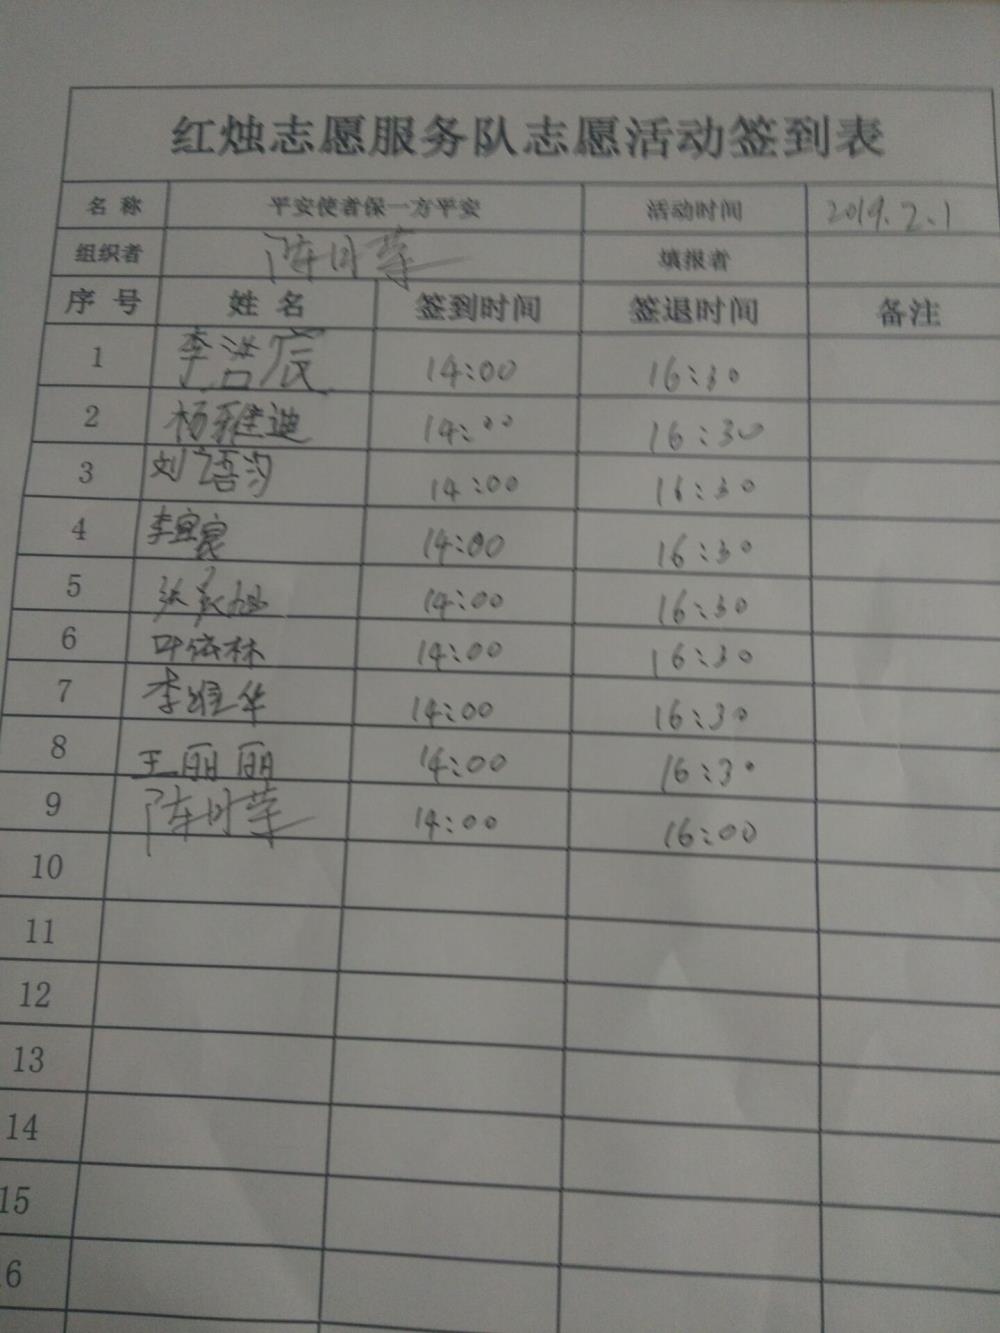 红烛志愿服务队志愿活动签到表
名称 平安使者保一方平安 活动时间 2019.2.1
组织者 陈月莲 填报者
序号 姓名 签到时间 签退时间 备注
1 李浩宸 14:00 16:30
2 杨雅迪 14:00 16:30
3 刘语汐 14:00 16:30
4 李宜宸 14:00 16:30
5 14:00 16:30
6 叶依林 14:00 16:30
7 李维华 14:00 16:30
8 王丽丽 14:00 16:30
9 陈月莲 14:00 16:00
10
11
12
13
14
15
6